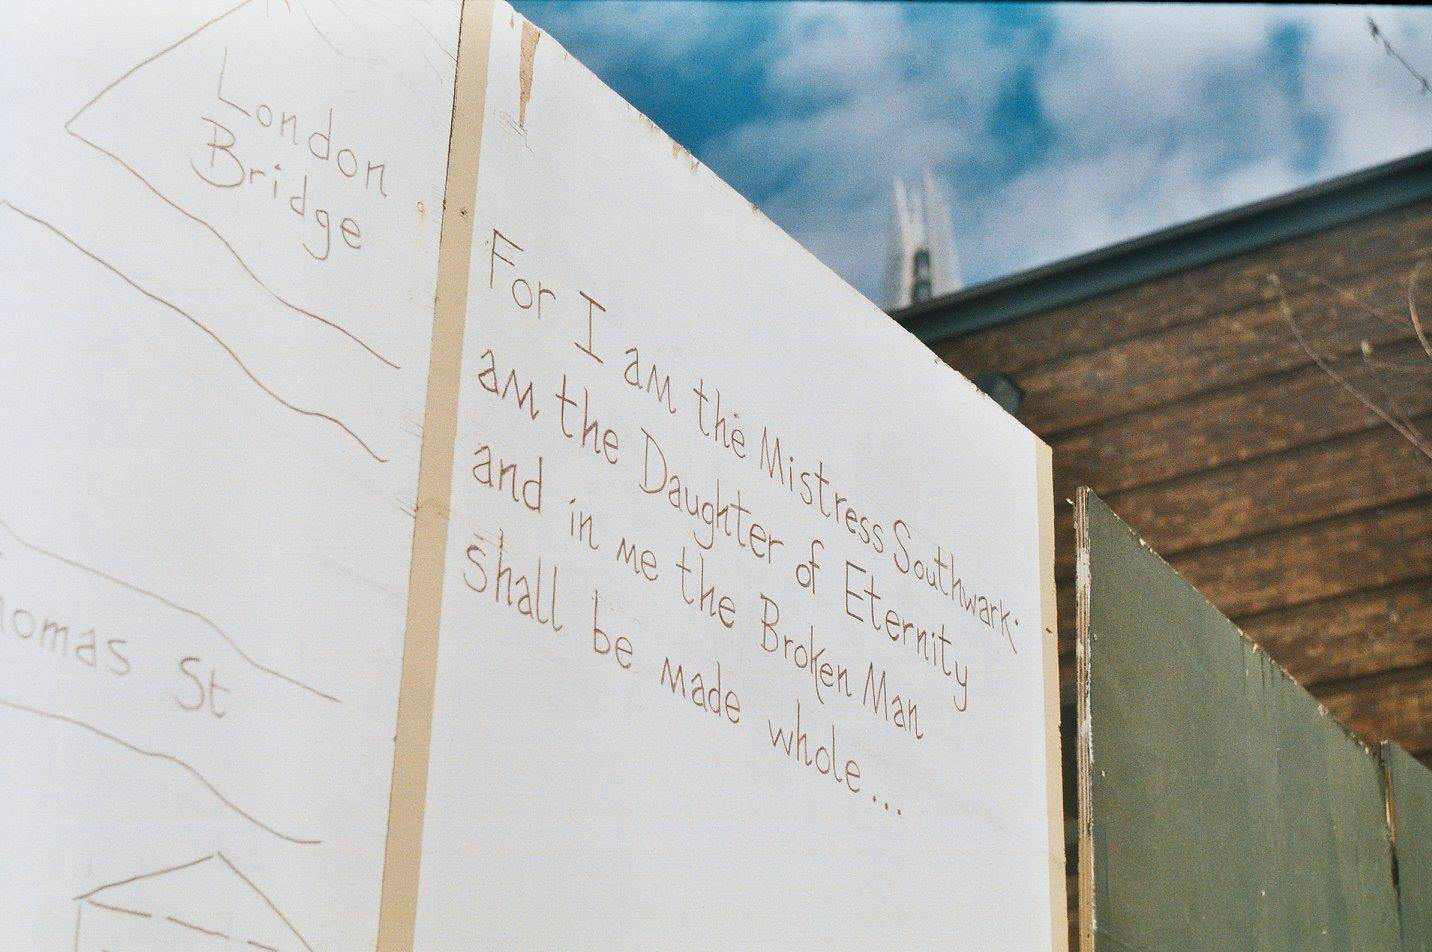 London
Bridge
For I am the Mistress Southwark.
am the Daughter of Eternity
and in me the Broken Man
shall be made whole...
homas St